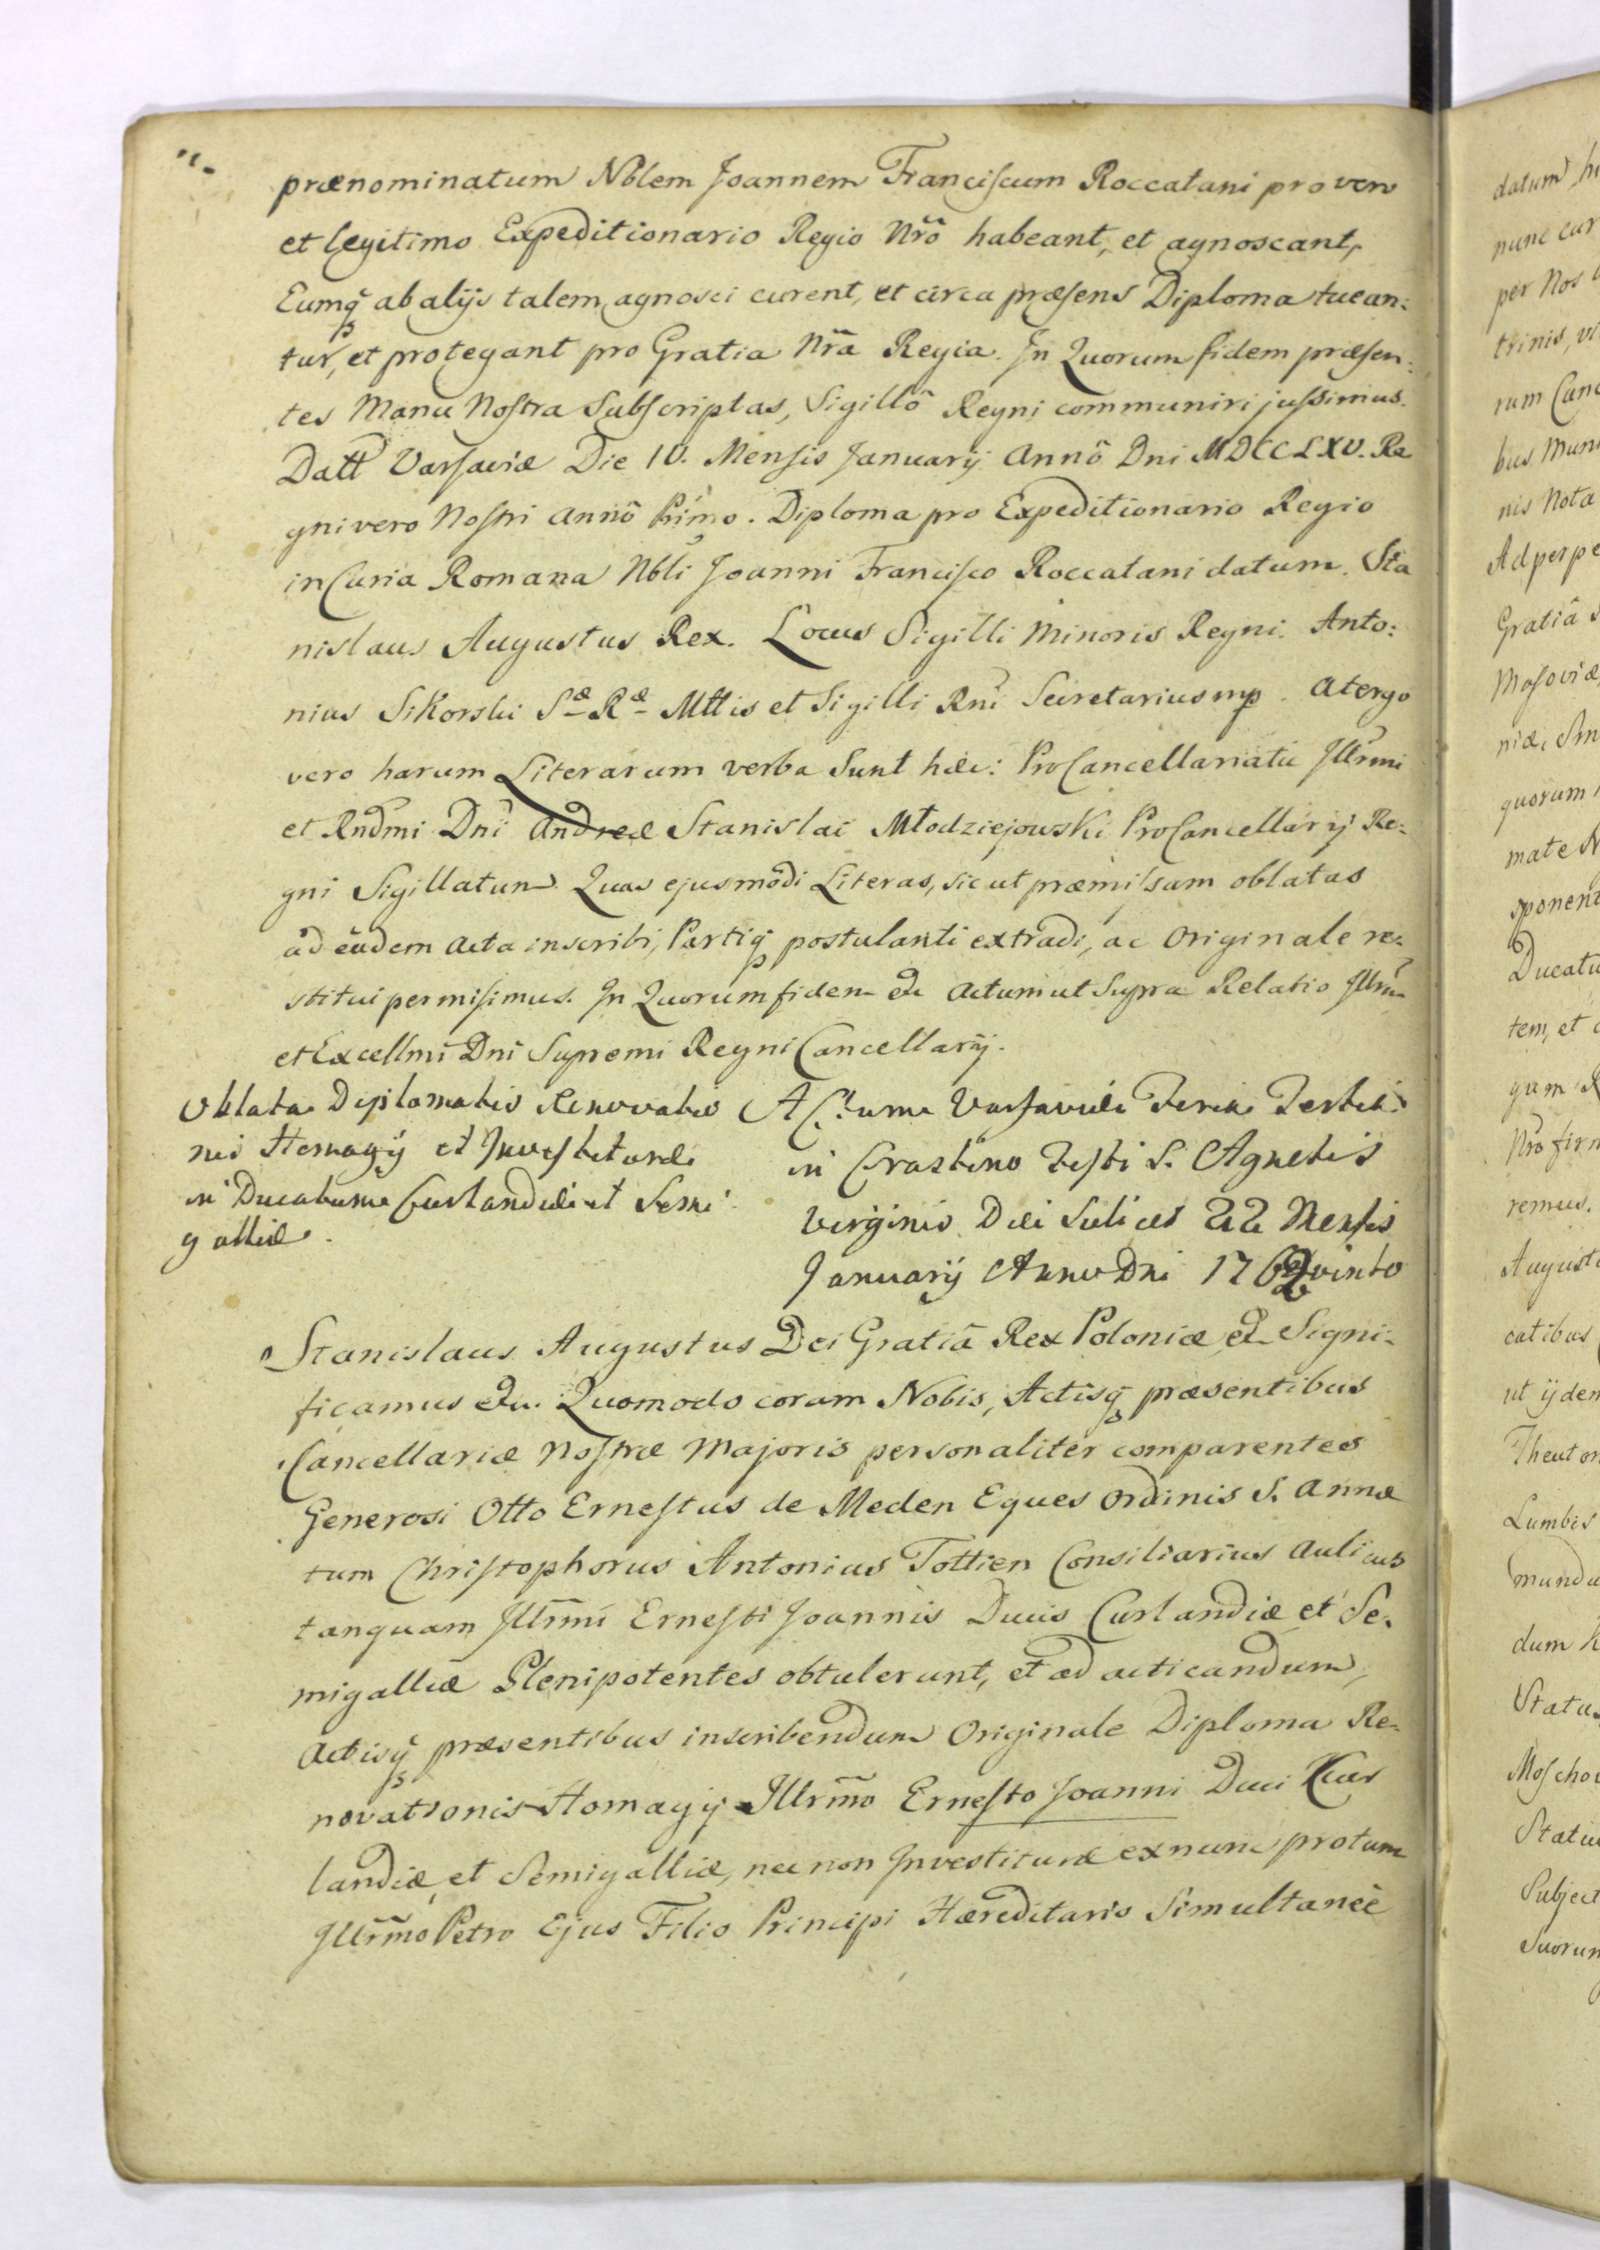 prænominatum Nblem Joannem Franciscum Roccatani pro vero
et legitimo Expeditionario Regio Nrô habeant, et agnoscant,
Eumq ab alijs talem agnosci curent, et circa præsens Diploma tuean:
tur, et protegant pro Gratia Nrã Regia. In Quorum fidem præsen:
tes Manu Nostra Subscriptas, Sigillô Regni communiri jussimus.
Datt Varsaviæ Die IV. Mensis Januarij Annô Dni MDCCLXV. Re
gni vero Nostri Annô Primo. Diploma pro Expeditionario Regio
in Curia Romana Nbli Joanni Francisco Roccatani datum. Sta
nislaus Augustus Rex. Locus Sigilli Minoris Regni. Anto:
nius Sikorski Sæ Ræ Mttis et Sigilli Rni Secretarius mp. A tergo
vero harum Literarum verba Sunt hæc: ProCancellariatu Illrmi
et Rndmi Dni Andreæ Stanislai Młodziejowski ProCancellarij Re:
gni Sigillatum. Quas ejusmodi Literas, sicut præmissum oblatas
ad eadem Acta inscribi, Partiq postulanti extradi, ac Originale re:
stitui permisimus. In Quorum fidem &c Actum ut Supra Relatio Illrmi
et Excellmi Dni Supremi Regni Cancellarij.
Oblata Diplomatis Renovatio
nis Homagij et Investituræ
in Ducatum Curlandiæ et Semi
galliæ.
Actum Varsaviæ Feria Tertia
in Crastino Festi S. Agnetis
Virginis Die Scilicet 22 Mensis
Januarij Anno Dni 176Quinto
Stanislaus Augustus Dei Gratiâ Rex Poloniæ &c Signi:
ficamus &c. Quomodo coram Nobis, Actisq præsentibus
Cancellariæ Nostræ Majoris personaliter comparentes
Generosi Otto Ernestus de Meden Eques Ordinis S. Annæ
tum Christophorus Antonius Tottien Consiliarius Aulicus
tanquam Illrmi Ernesti Joannis Ducis Curlandiæ et Se:
migalliæ Plenipotentes obtulerunt, et ad acticandum,
Actisq præsentibus inscribendum Originale Diploma Re:
novationis Homagij Illrmo Ernesto Joanni Duci Cur
landiæ, et Semigalliæ, nec non Investituræ ex nunc pro tum
Illrmo Petro Ejus Filio Principi Hæreditario Simultaneè